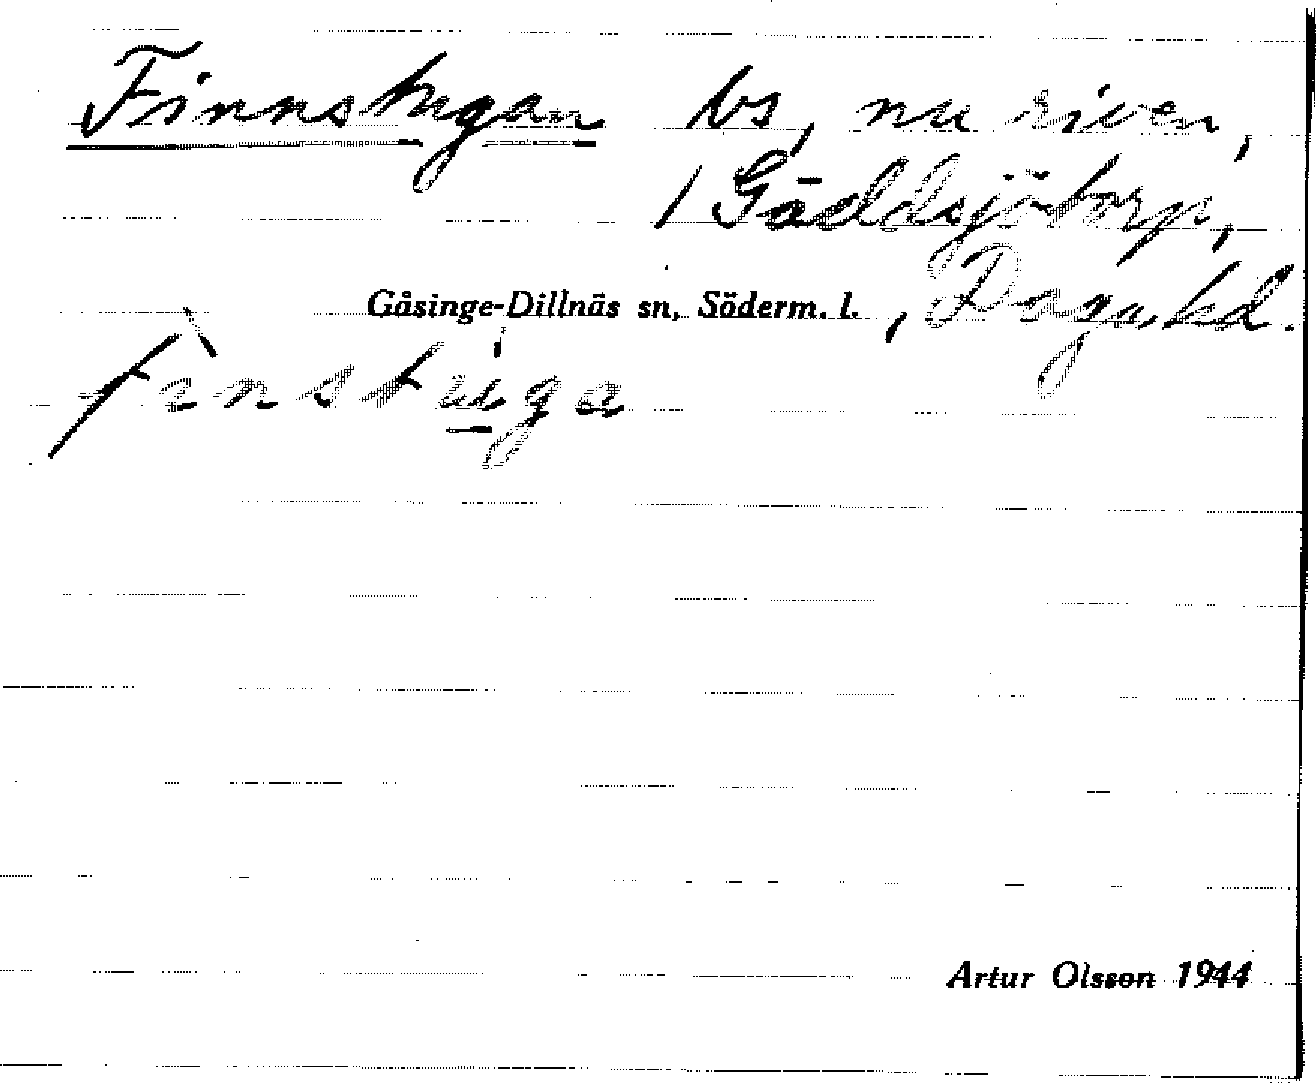 Finnstugan bs, nu riven,
/ Gäddsjötorp,
Gåsinge-Dillnäs sn, Söderm. l. , Daga hd.
fìnstú̲ga
Artur Olsson 1944